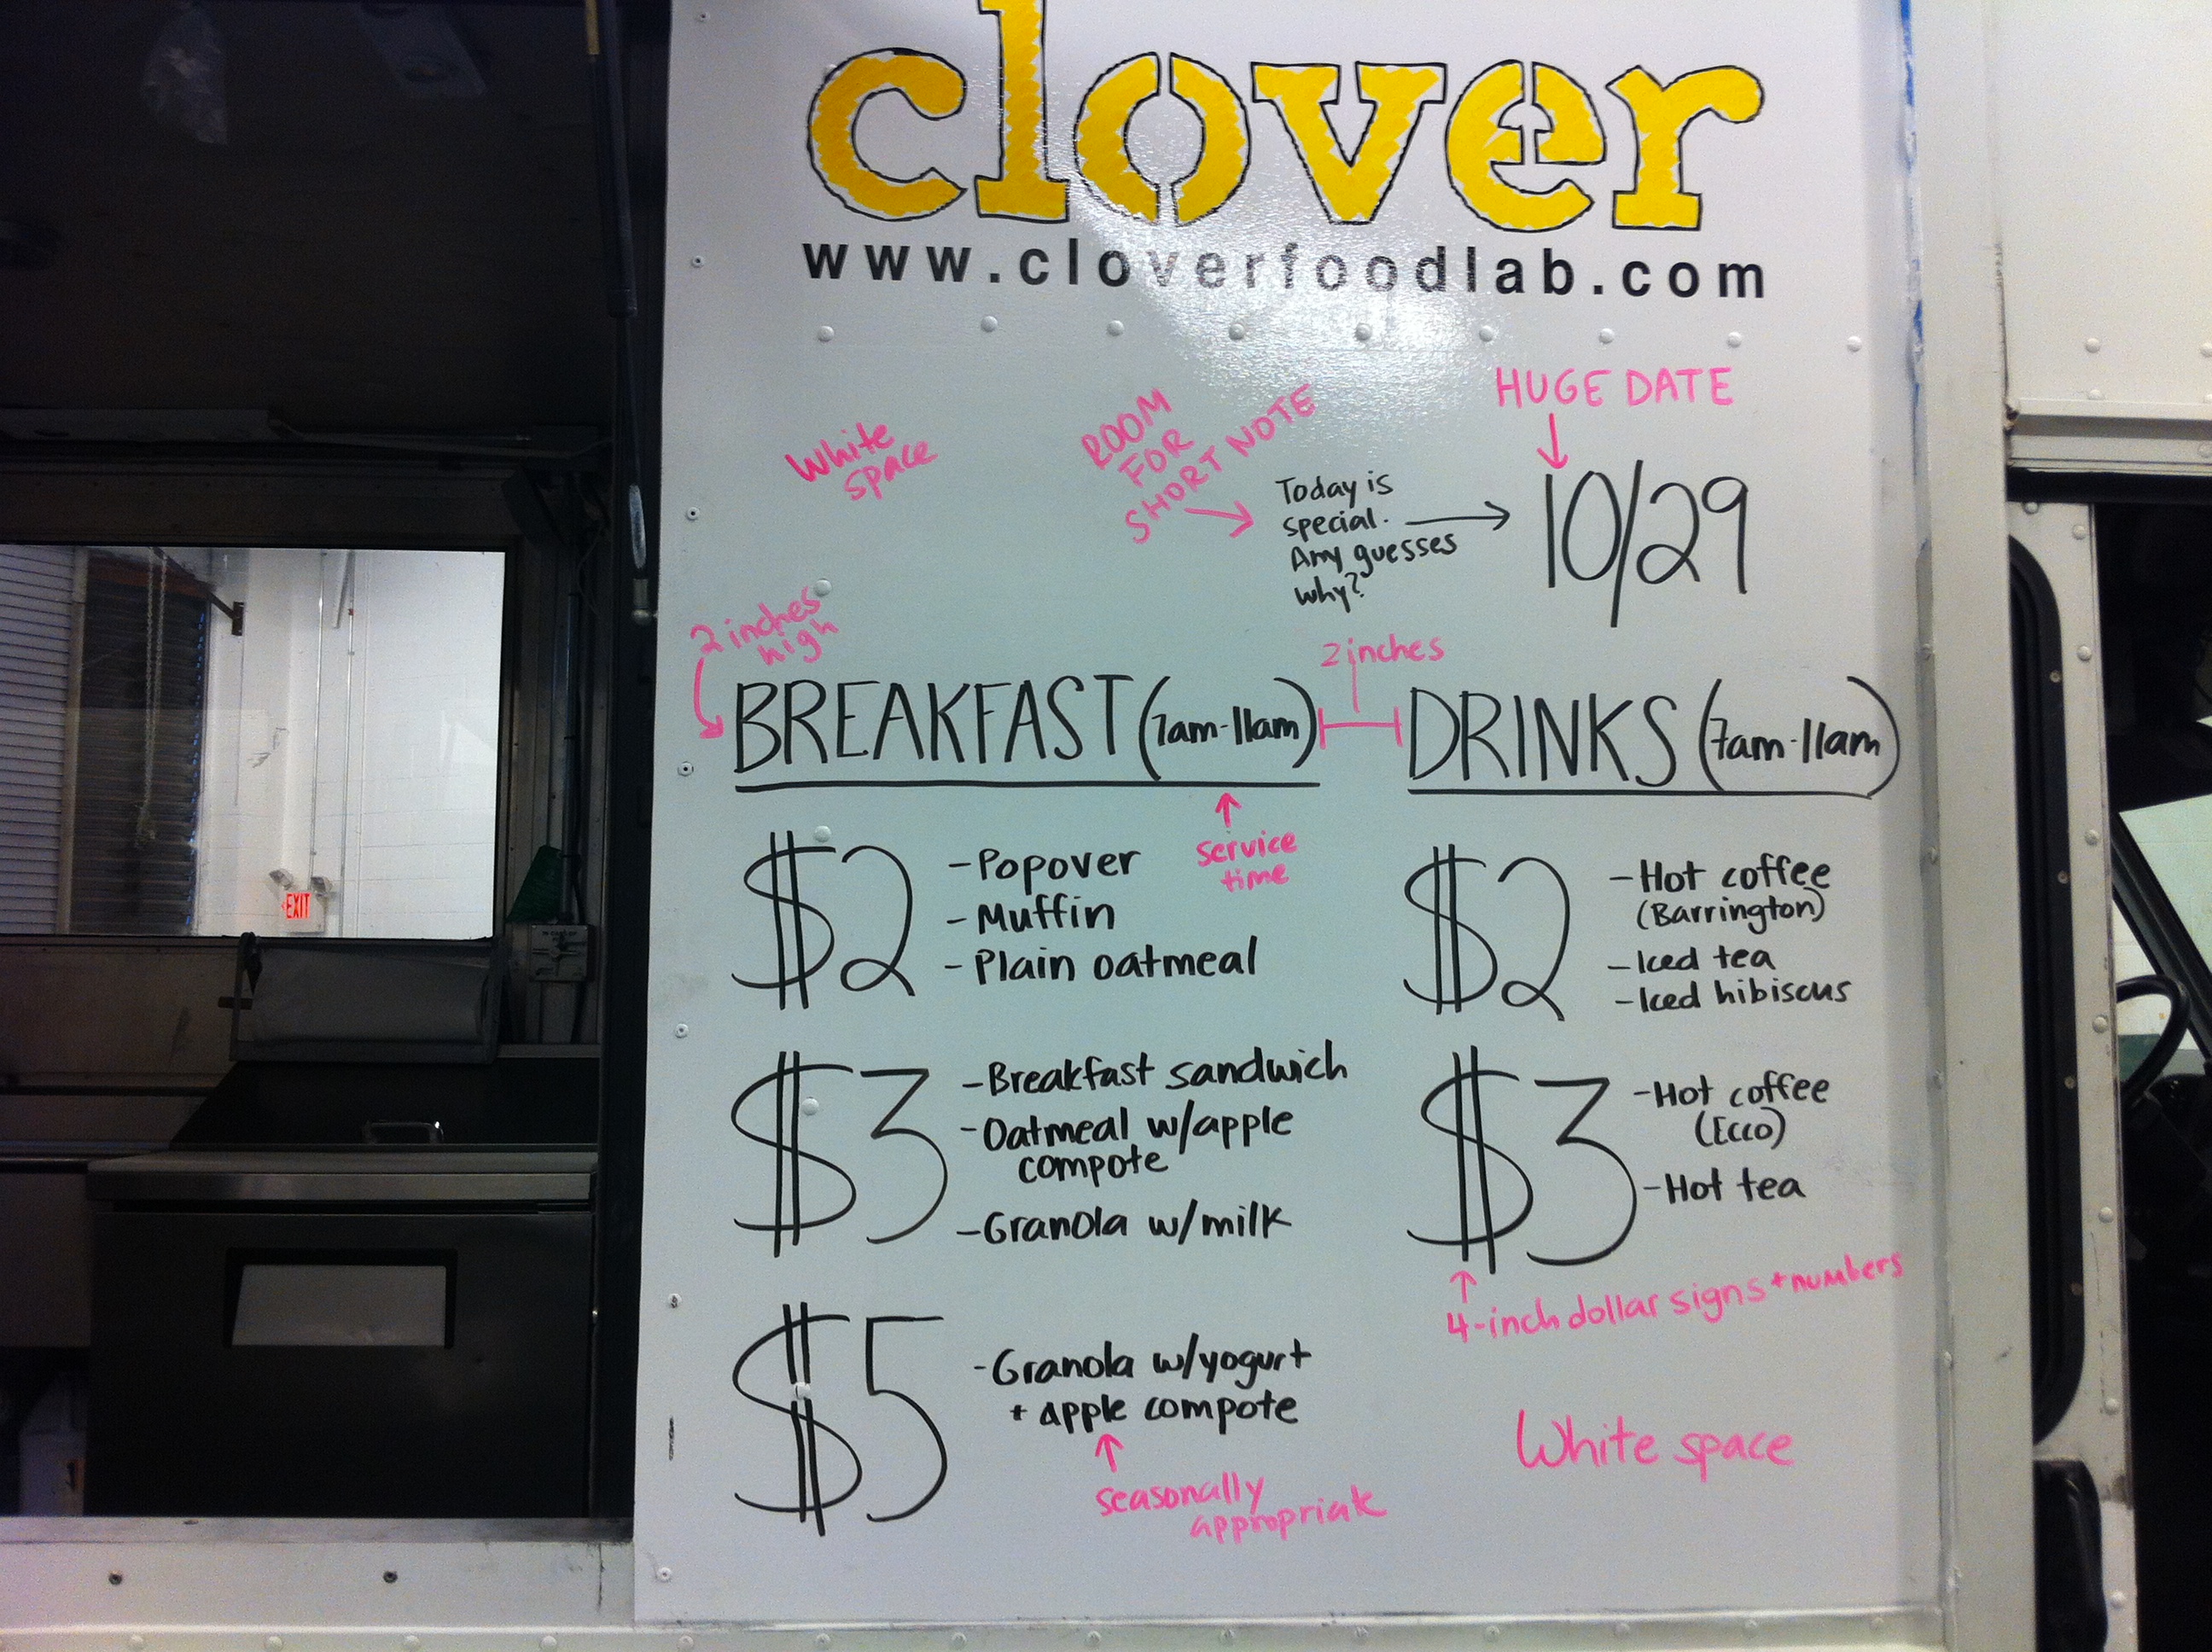 clover
www.cloverfoodlab.com
HUGE DATE
White
space
ROOM
FOR
SHORT NOTE
Today is
special.
Any guesses
why?
10/29
2 inches
high
2 inches
BREAKFAST (7am-11am)
DRINKS (7am-11am)
service
time
$2
-Popover
-Muffin
-Plain oatmeal
$2
-Hot coffee
(Barrington)
-Iced tea
-Iced hibiscus
$3
-Breakfast sandwich
-Oatmeal w/apple
compote
-Granola w/milk
$3
-Hot coffee
(Ecco)
-Hot tea
4-inch dollar signs + numbers
$5
-Granola w/yogurt
+ apple compote
seasonally
appropriate
White space
EXIT